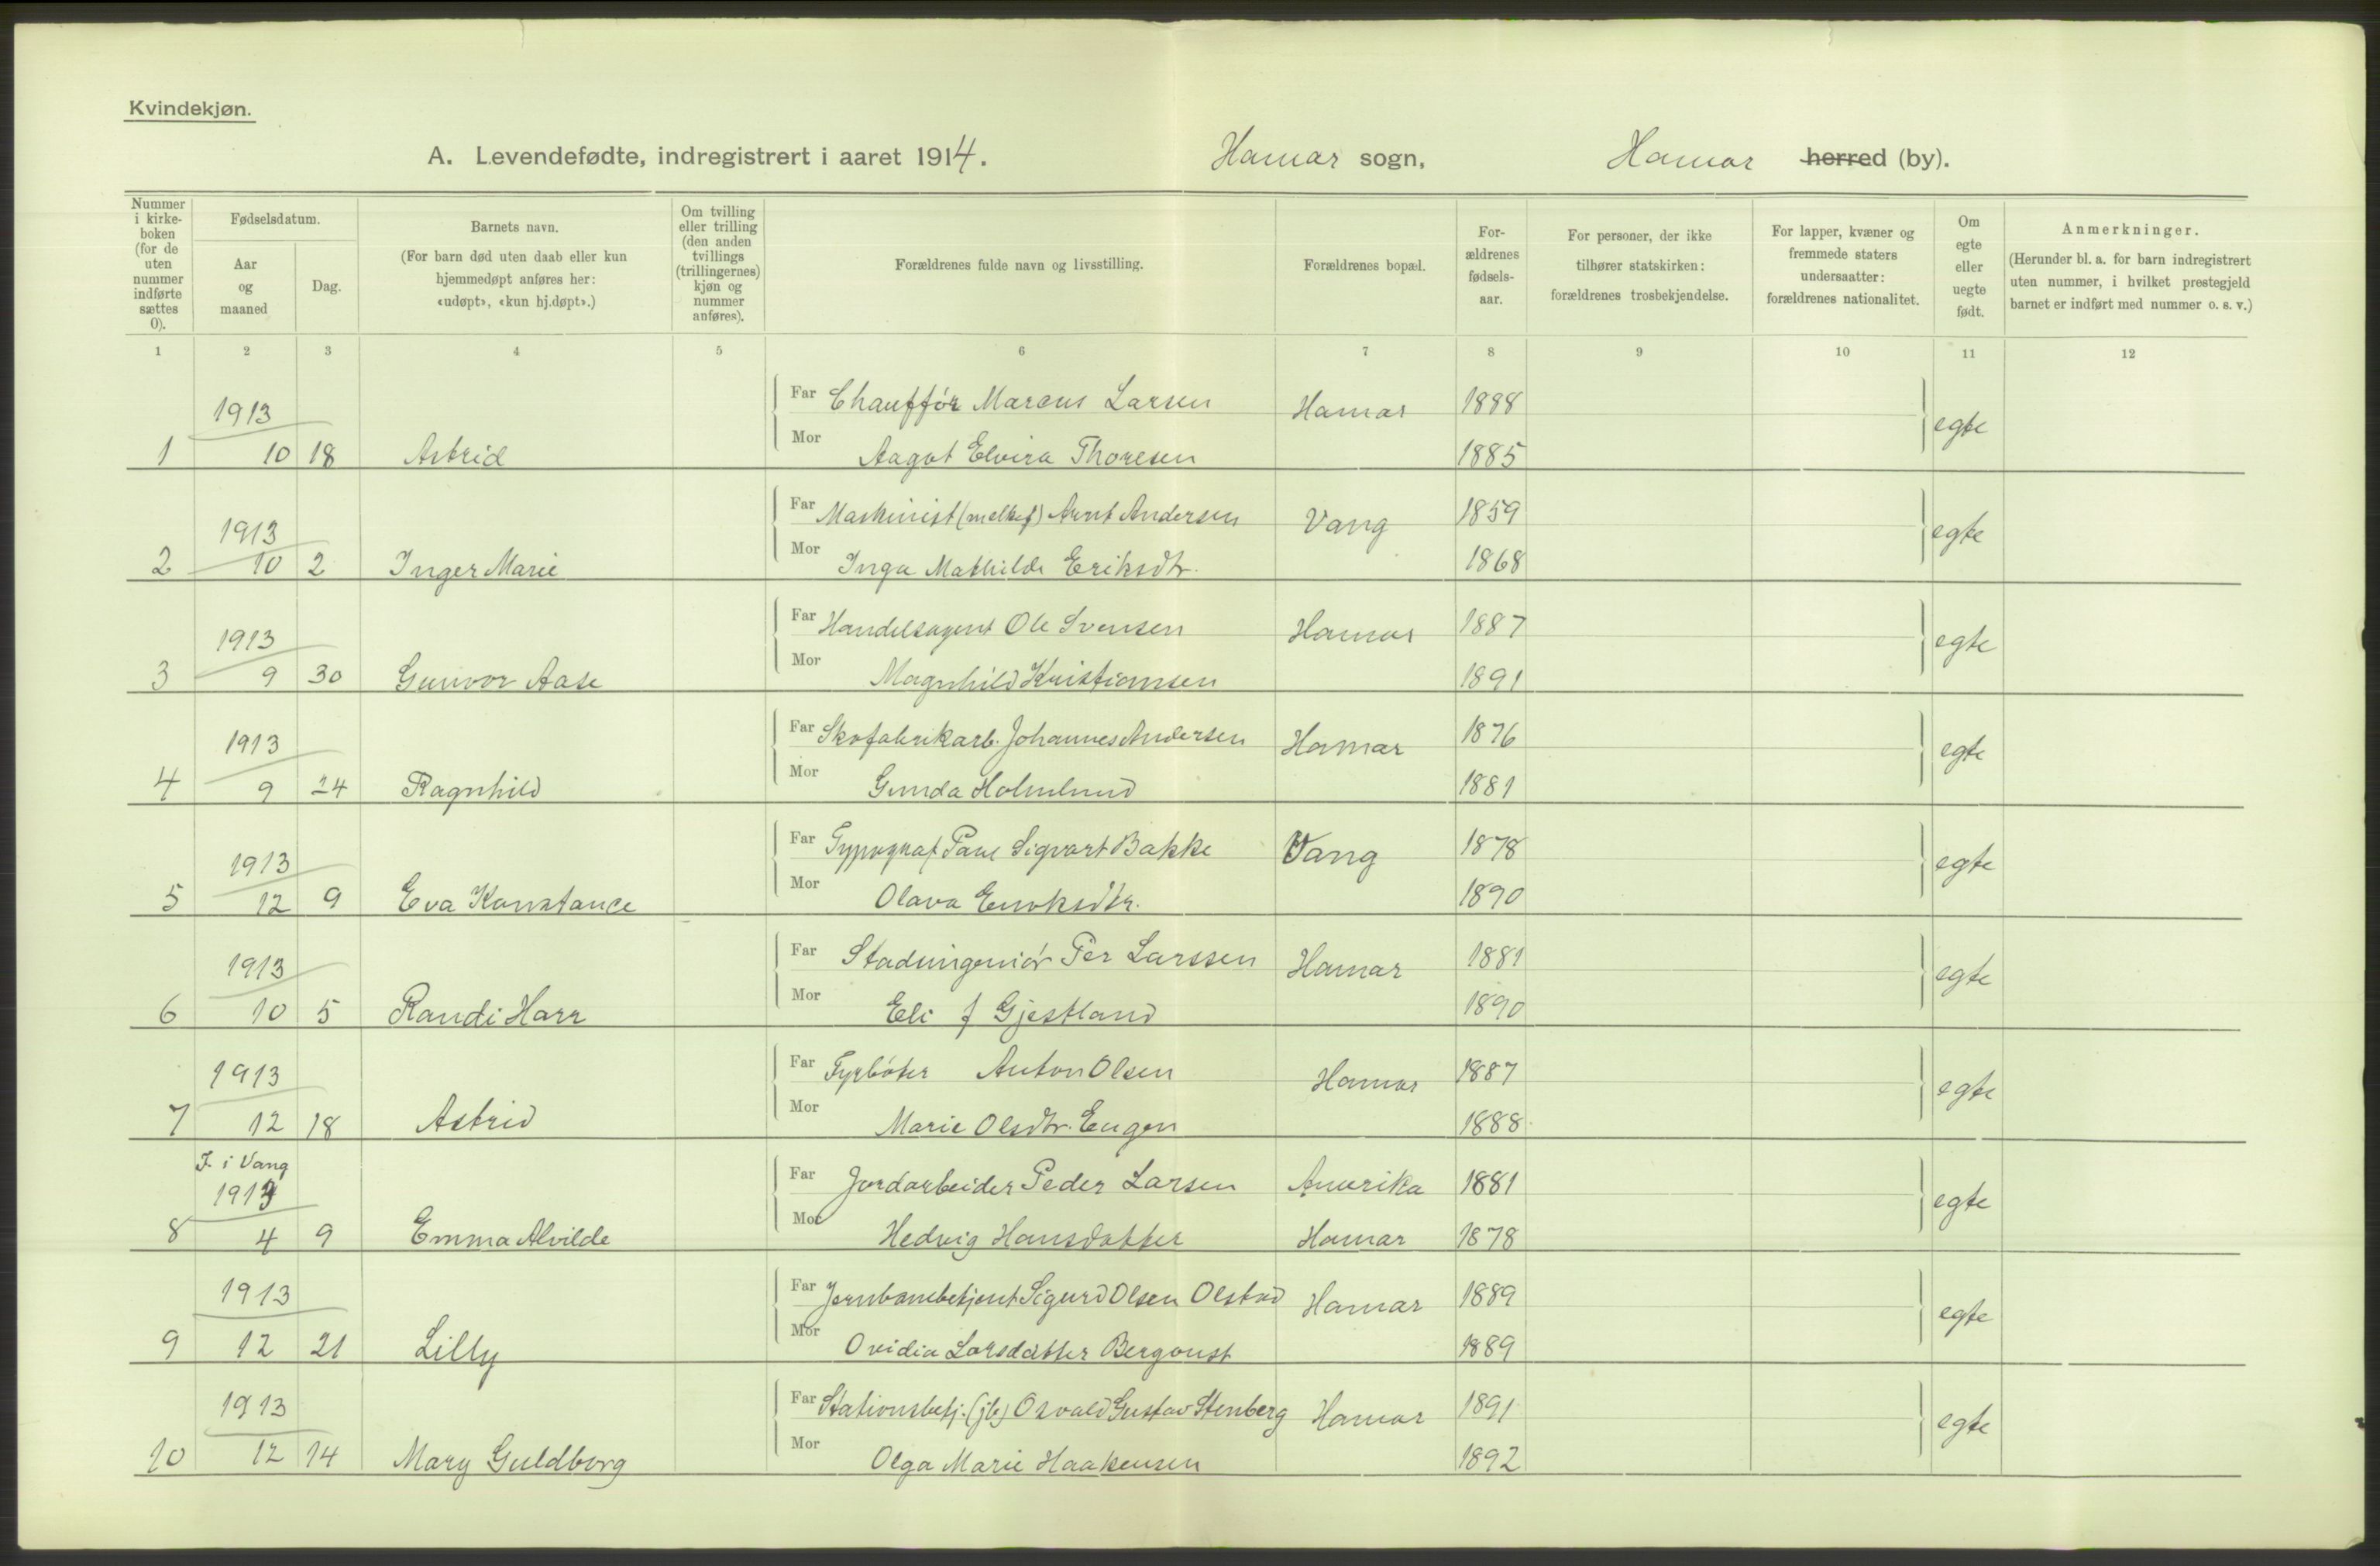 Kvindekjøn.
A. Levendefødte, indregistrert i aaret 1914. Hamar sogn, Hamar herred (by).
Nummer i kirkeboken (for de uten nummer indførte sættes 0).
Fødselsdatum.
Aar og maaned
Dag.
Barnets navn.
(For barn død uten daab eller kun hjemmedøpt anføres her: «udøpt», «kun hj.døpt».)
Om tvilling eller trilling (den anden tvillings (trillingernes) kjøn og nummer anføres).
Forældrenes fulde navn og livsstilling.
Forældrenes bopæl.
Forældrenes fødselsaar.
For personer, der ikke tilhører statskirken: forældrenes trosbekjendelse.
For lapper, kvæner og fremmede staters undersaatter: forældrenes nationalitet.
Om egte eller uegte født.
Anmerkninger.
(Herunder bl. a. for barn indregistrert uten nummer, i hvilket prestegjeld barnet er indført med nummer o. s. v.)
1 2 3 4 5 6 7 8 9 10 11 12
1913 Far Chauffør Marcus Larsen Hamar 1888 egte
1 10 18 Astrid Mor Aagot Elvira Thoresen 1885
1913 Far Maskinist (melkef) Arnt Andersen Vang 1859 egte
2 10 2 Inger Marie Mor Inga Mathilde Eriksdtr. 1868
1913 Far Handelsagent Ole Svensen Hamar 1887 egte
3 9 30 Gunvor Aase Mor Magnhild Kristiansen 1891
1913 Far Skofabrikarb. Johannes Andersen Hamar 1876 egte
4 9 24 Ragnhild Mor Gunda Holmlund 1881
1913 Far Typograf Paul Sigvart Bakke Vang 1878 egte
5 12 9 Eva Konstance Mor Olava Enoksdtr. 1890
1913 Far Stadsingeniør Per Larssen Hamar 1881 egte
6 10 5 Randi Harr Mor Eli f Gjestland 1890
1913 Far Fyrbøter Anton Olsen Hamar 1887 egte
7 12 18 Astrid Mor Marie Olsdtr. Engen 1888
F. i Vang
1913 Far Jordarbeider Peder Larsen Amerika 1881 egte
8 4 9 Emma Alvilde Mor Hedvig Hansdatter Hamar 1878
1913 Far Jernbanebetjent Sigurd Olsen Olstad Hamar 1889 egte
9 12 21 Lilly Mor Ovidia Larsdatter Bergqust 1889
1913 Far Stationsbetj. (jb) Osvald Gustav Stenberg Hamar 1891 egte
10 12 14 Mary Guldborg Mor Olga Marie Haakensen 1892